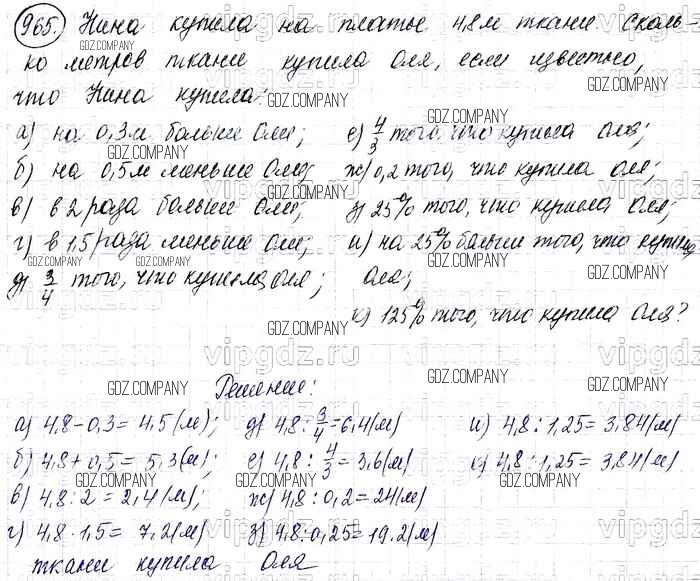 965. Нина купила на платье 4,8 м ткани. Сколь-
ко метров ткани купила Оля, если известно,
что Нина купила:
а) на 0,3 м больше Оли;
б) на 0,5 м меньше Оли;
в) в 2 раза больше Оли;
г) в 1,5 раза меньше Оли;
д) 3/4 того, что купила Оля;
е) 4/3 того, что купила Оля;
ж) 0,2 того, что купила Оля;
з) 25% того, что купила Оля;
и) на 25% больше того, что купила
Оля;
к) 125% того, что купила Оля?
Решение:
а) 4,8-0,3=4,5(м);
б) 4,8+0,5=5,3(м);
в) 4,8:2=2,4(м);
г) 4,8·1,5=7,2(м)
д) 4,8:3/4=6,4(м)
е) 4,8:4/3=3,6(м)
ж) 4,8:0,2=24(м)
з) 4,8:0,25=19.2(м)
и) 4,8:1,25=3,84(м)
к) 4,8:1,25=3,84(м)
ткани купила Оля
GDZ.COMPANY
vipgdz.ru